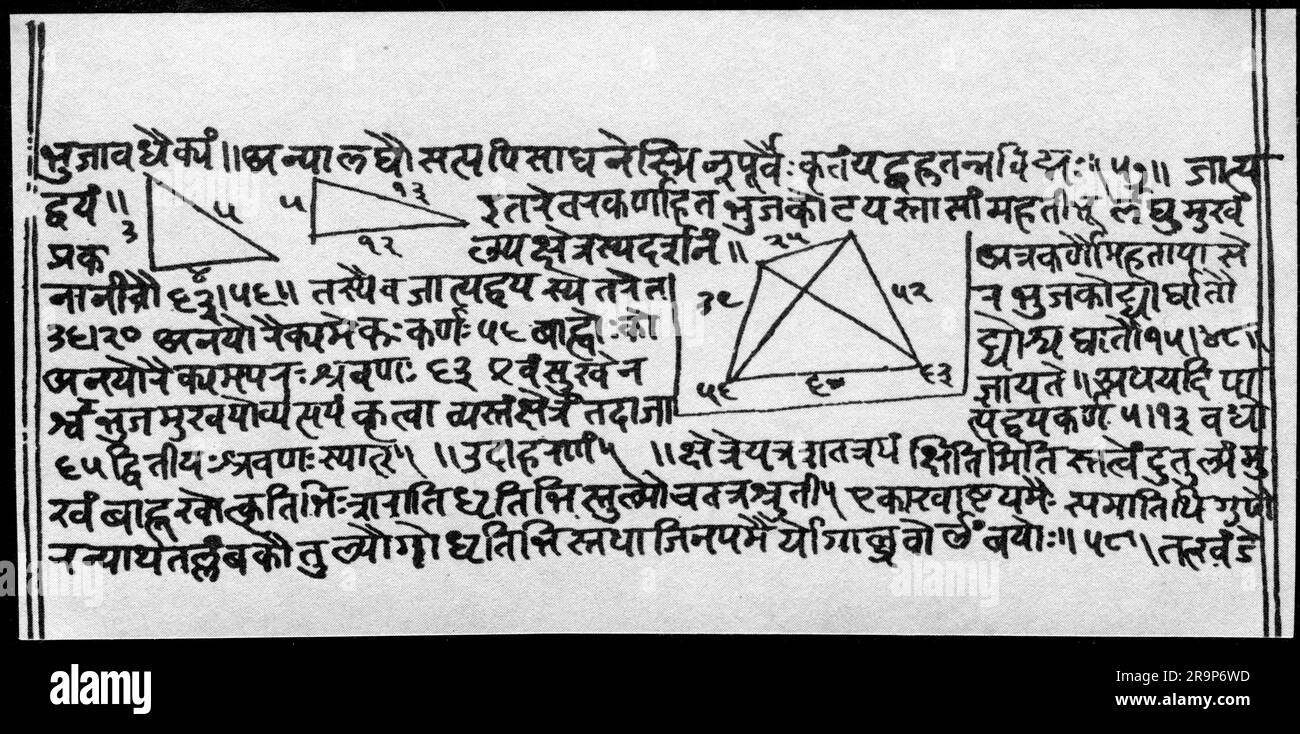 भुजावधैक्यं॥अन्यालघौसत्यपिसाधनेस्मिन्पूर्वैःकृतंयद्गुरुतन्नविद्मः॥५७॥ जात्य
द्वयं॥ ३ ५ ४ ५ १३ १२ इतरेतरकर्णाहतभुजकोटयस्तासांमहतीभूर्लघुमुखं
प्रक ल्प्यक्षेत्रस्यदर्शनं॥ २५ ३९ ५२ ५६ ६० ६३ अत्रकर्णौमहताया
६३।५६॥ तस्यैवजात्यद्वयस्ये न भुजकोट्योर्घातौ
३६।२० अनयोरैक्यमेकःकर्णः ५६ बाह्वोःको ट्योश्चघातौ१५।४८॥
अनयोरैक्यमपरःश्रवणः ६३ एवंसुखेन ज्ञायते॥अथयदि पा
र्श्वभुजमुखयोर्व्यत्ययंकृत्वा न्यस्तंक्षेत्रंतदाजा त्यद्वयकर्ण ५।१३ वधो
६५द्वितीयःश्रवणःस्यात् ॥उदाहरणं ॥क्षेत्रेयत्रशतत्रयंक्षितिमितिस्तत्वेंदुतुल्यंमु
खंबाहूखोत्कृतिभिःशरातिधृतिभिस्तुल्यौचतत्रश्रुती एकाखाष्टयमैः समातिथिगुणै
रन्याथतल्लंबकौतुल्यौगोधृतिभिस्तथाजिनयमैर्योगाच्छ्रवोर्लंबयोः॥५८॥तत्खंडे
alamy
Image ID: 2R9P6WD
www.alamy.com